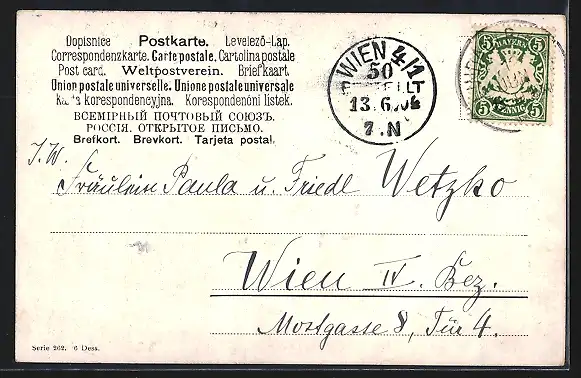 Dopisnice Postkarte. Levelező-Lap.
Correspondenzkarte. Carte postale. Cartolina postale
Post card. Weltpostverein. Briefkaart.
Union postale universelle. Unione postale universale
korespondencyjna. Korespondenčni listek.
ВСЕМІРНЫЙ ПОЧТОВЫЙ СОЮЗЪ.
РОССІЯ. ОТКРЫТОЕ ПИСЬМО.
Brefkort. Brevkort. Tarjeta postal.
WIEN 4/1
50
13.6.
7.N
5 BAYERN 5
5 PFENNIG 5
J. W.
Fräulein Paula u. Friedl Wetzko
Wien IV. Bez.
Mostgasse 8, Tür 4.
Serie 262. 6 Dess.